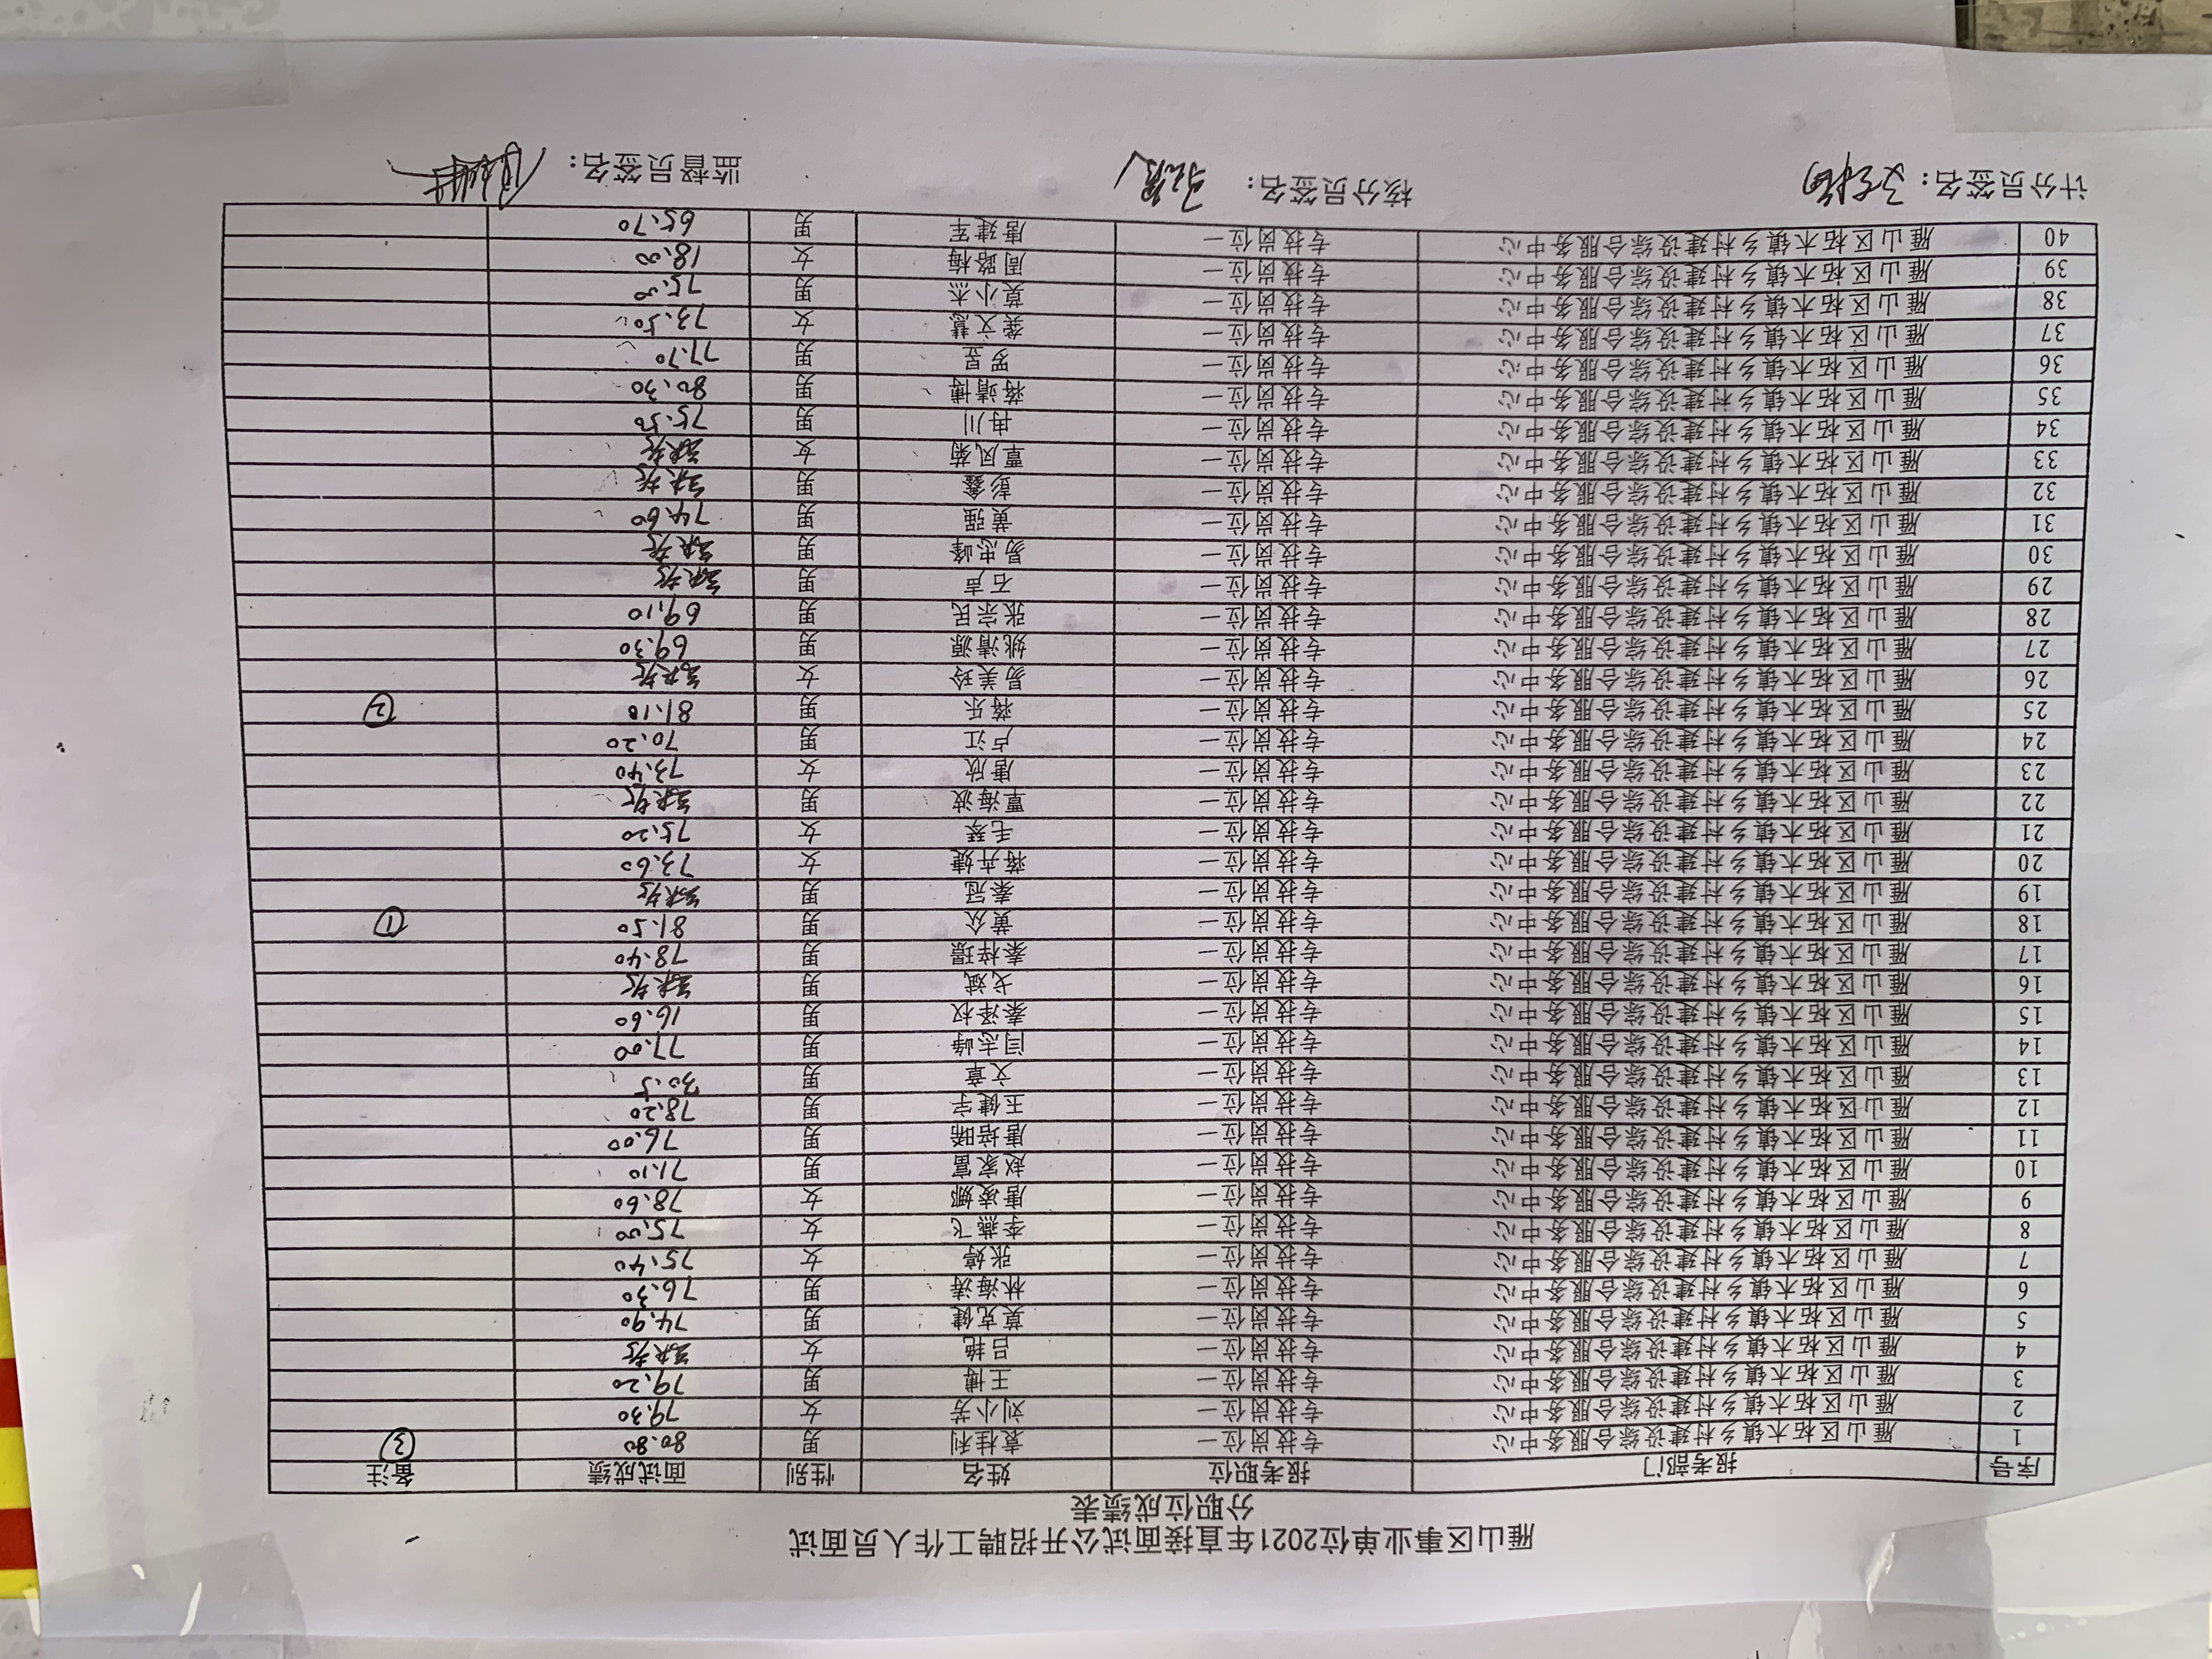 雁山区事业单位2021年直接面试公开招聘工作人员面试
分职位成绩表
序号 报考部门 报考职位 姓名 性别 面试成绩 备注
1 雁山区柘木镇乡村建设综合服务中心 专技岗位一 袁桂利 男 80.80 ③
2 雁山区柘木镇乡村建设综合服务中心 专技岗位一 刘小芳 女 79.30
3 雁山区柘木镇乡村建设综合服务中心 专技岗位一 王博 男 79.20
4 雁山区柘木镇乡村建设综合服务中心 专技岗位一 吕艳 女 缺考
5 雁山区柘木镇乡村建设综合服务中心 专技岗位一 莫克健 男 74.90
6 雁山区柘木镇乡村建设综合服务中心 专技岗位一 林海涛 男 76.30
7 雁山区柘木镇乡村建设综合服务中心 专技岗位一 张婷 女 75.40
8 雁山区柘木镇乡村建设综合服务中心 专技岗位一 李燕飞 女 75.00
9 雁山区柘木镇乡村建设综合服务中心 专技岗位一 唐凌娜 女 78.60
10 雁山区柘木镇乡村建设综合服务中心 专技岗位一 赵家富 男 71.10
11 雁山区柘木镇乡村建设综合服务中心 专技岗位一 唐培晞 男 76.00
12 雁山区柘木镇乡村建设综合服务中心 专技岗位一 王健宇 男 78.20
13 雁山区柘木镇乡村建设综合服务中心 专技岗位一 文章 男 30.5
14 雁山区柘木镇乡村建设综合服务中心 专技岗位一 闫志峰 男 77.00
15 雁山区柘木镇乡村建设综合服务中心 专技岗位一 秦泽权 男 16.60
16 雁山区柘木镇乡村建设综合服务中心 专技岗位一 戈斌 男 缺考
17 雁山区柘木镇乡村建设综合服务中心 专技岗位一 秦梓璟 男 78.40
18 雁山区柘木镇乡村建设综合服务中心 专技岗位一 黄众 男 81.50 ①
19 雁山区柘木镇乡村建设综合服务中心 专技岗位一 秦冠 男 缺考
20 雁山区柘木镇乡村建设综合服务中心 专技岗位一 蒋卉婕 女 73.60
21 雁山区柘木镇乡村建设综合服务中心 专技岗位一 毛琴 女 75.20
22 雁山区柘木镇乡村建设综合服务中心 专技岗位一 覃海波 男 缺考
23 雁山区柘木镇乡村建设综合服务中心 专技岗位一 唐欣 女 73.40
24 雁山区柘木镇乡村建设综合服务中心 专技岗位一 卢江 男 70.20
25 雁山区柘木镇乡村建设综合服务中心 专技岗位一 蒋乐 男 81.10 ②
26 雁山区柘木镇乡村建设综合服务中心 专技岗位一 易美玲 女 缺考
27 雁山区柘木镇乡村建设综合服务中心 专技岗位一 姚清源 男 69.30
28 雁山区柘木镇乡村建设综合服务中心 专技岗位一 张宗民 男 69.10
29 雁山区柘木镇乡村建设综合服务中心 专技岗位一 石吉 男 缺考
30 雁山区柘木镇乡村建设综合服务中心 专技岗位一 易忠峰 男 缺考
31 雁山区柘木镇乡村建设综合服务中心 专技岗位一 黄强 男 74.60
32 雁山区柘木镇乡村建设综合服务中心 专技岗位一 彭鑫 男 缺考
33 雁山区柘木镇乡村建设综合服务中心 专技岗位一 覃凤菊 女 缺考
34 雁山区柘木镇乡村建设综合服务中心 专技岗位一 冉川 男 75.50
35 雁山区柘木镇乡村建设综合服务中心 专技岗位一 蒋靖博 男 80.30
36 雁山区柘木镇乡村建设综合服务中心 专技岗位一 罗昱 男 77.70
37 雁山区柘木镇乡村建设综合服务中心 专技岗位一 龚文慧 女 73.50
38 雁山区柘木镇乡村建设综合服务中心 专技岗位一 莫小杰 男 75.00
39 雁山区柘木镇乡村建设综合服务中心 专技岗位一 周路梅 女 18.00
40 雁山区柘木镇乡村建设综合服务中心 专技岗位一 唐建军 男 65.70
计分员签名： 核分员签名： 监督员签名：